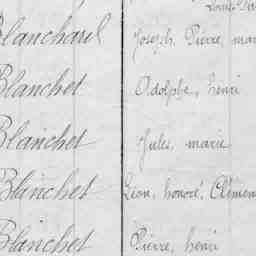 Blanchard Joseph, Pierre, mari
Blanchet Adolphe, henri
Blanchet Jules, marie
Blanchet Léon, honoré, Clémen
Blanchet Pierre, henri